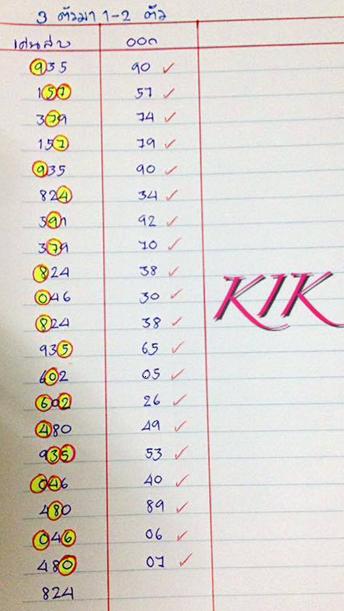 3 ตัวมา 1-2 ตัว
เด่นสิบ ออก
935 90 ✓
157 57 ✓
379 74 ✓
157 79 ✓
935 90 ✓
824 34 ✓
591 92 ✓
379 70 ✓
824 38 ✓
046 30 ✓
824 38 ✓
935 65 ✓
602 05 ✓
602 26 ✓
480 49 ✓
935 53 ✓
046 40 ✓
480 89 ✓
046 06 ✓
480 07 ✓
824
KIK